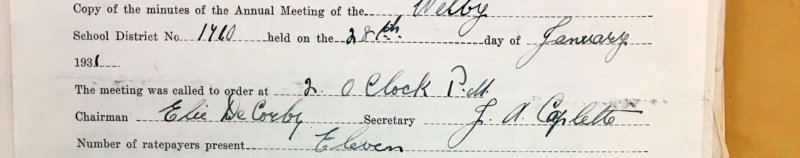 Copy of the minutes of the Annual Meeting of the Welby
School District No. 1710 held on the 28th day of January
1931
The meeting was called to order at 2. O Clock P.M.
Chairman Elie DeCorby Secretary J. A. Caplette
Number of ratepayers present Eleven